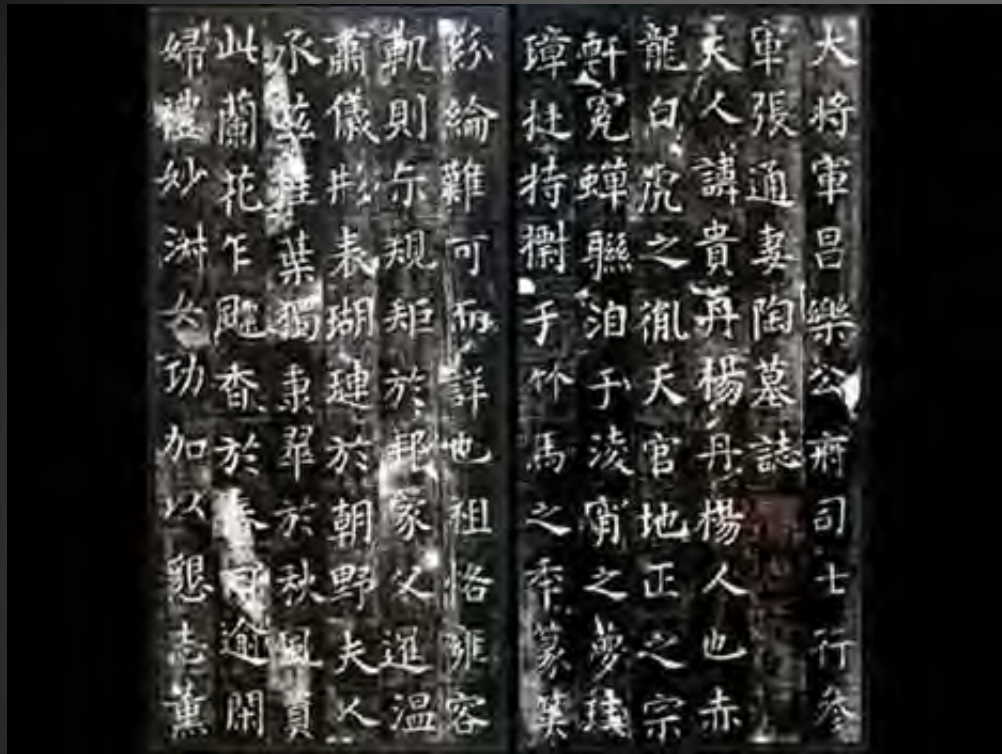 大将軍昌樂公府司士行參
軍張通妻陶墓誌
夫人諱貴丹楊丹楊人也赤
龍白虎之胤天官地正之宗
軒冕蟬聯洎于淩霄之夢
璋挺特擲于竹馬之年篆
紛綸難可而詳也祖恪雍容
軌則示規矩於邦家父進温
肅儀形表瑚璉於朝野夫人
承兹桂葉獨秉翠於秋風貫
此蘭花乍飄香於春日逾閑
婦禮妙淋女功加以懇志薰